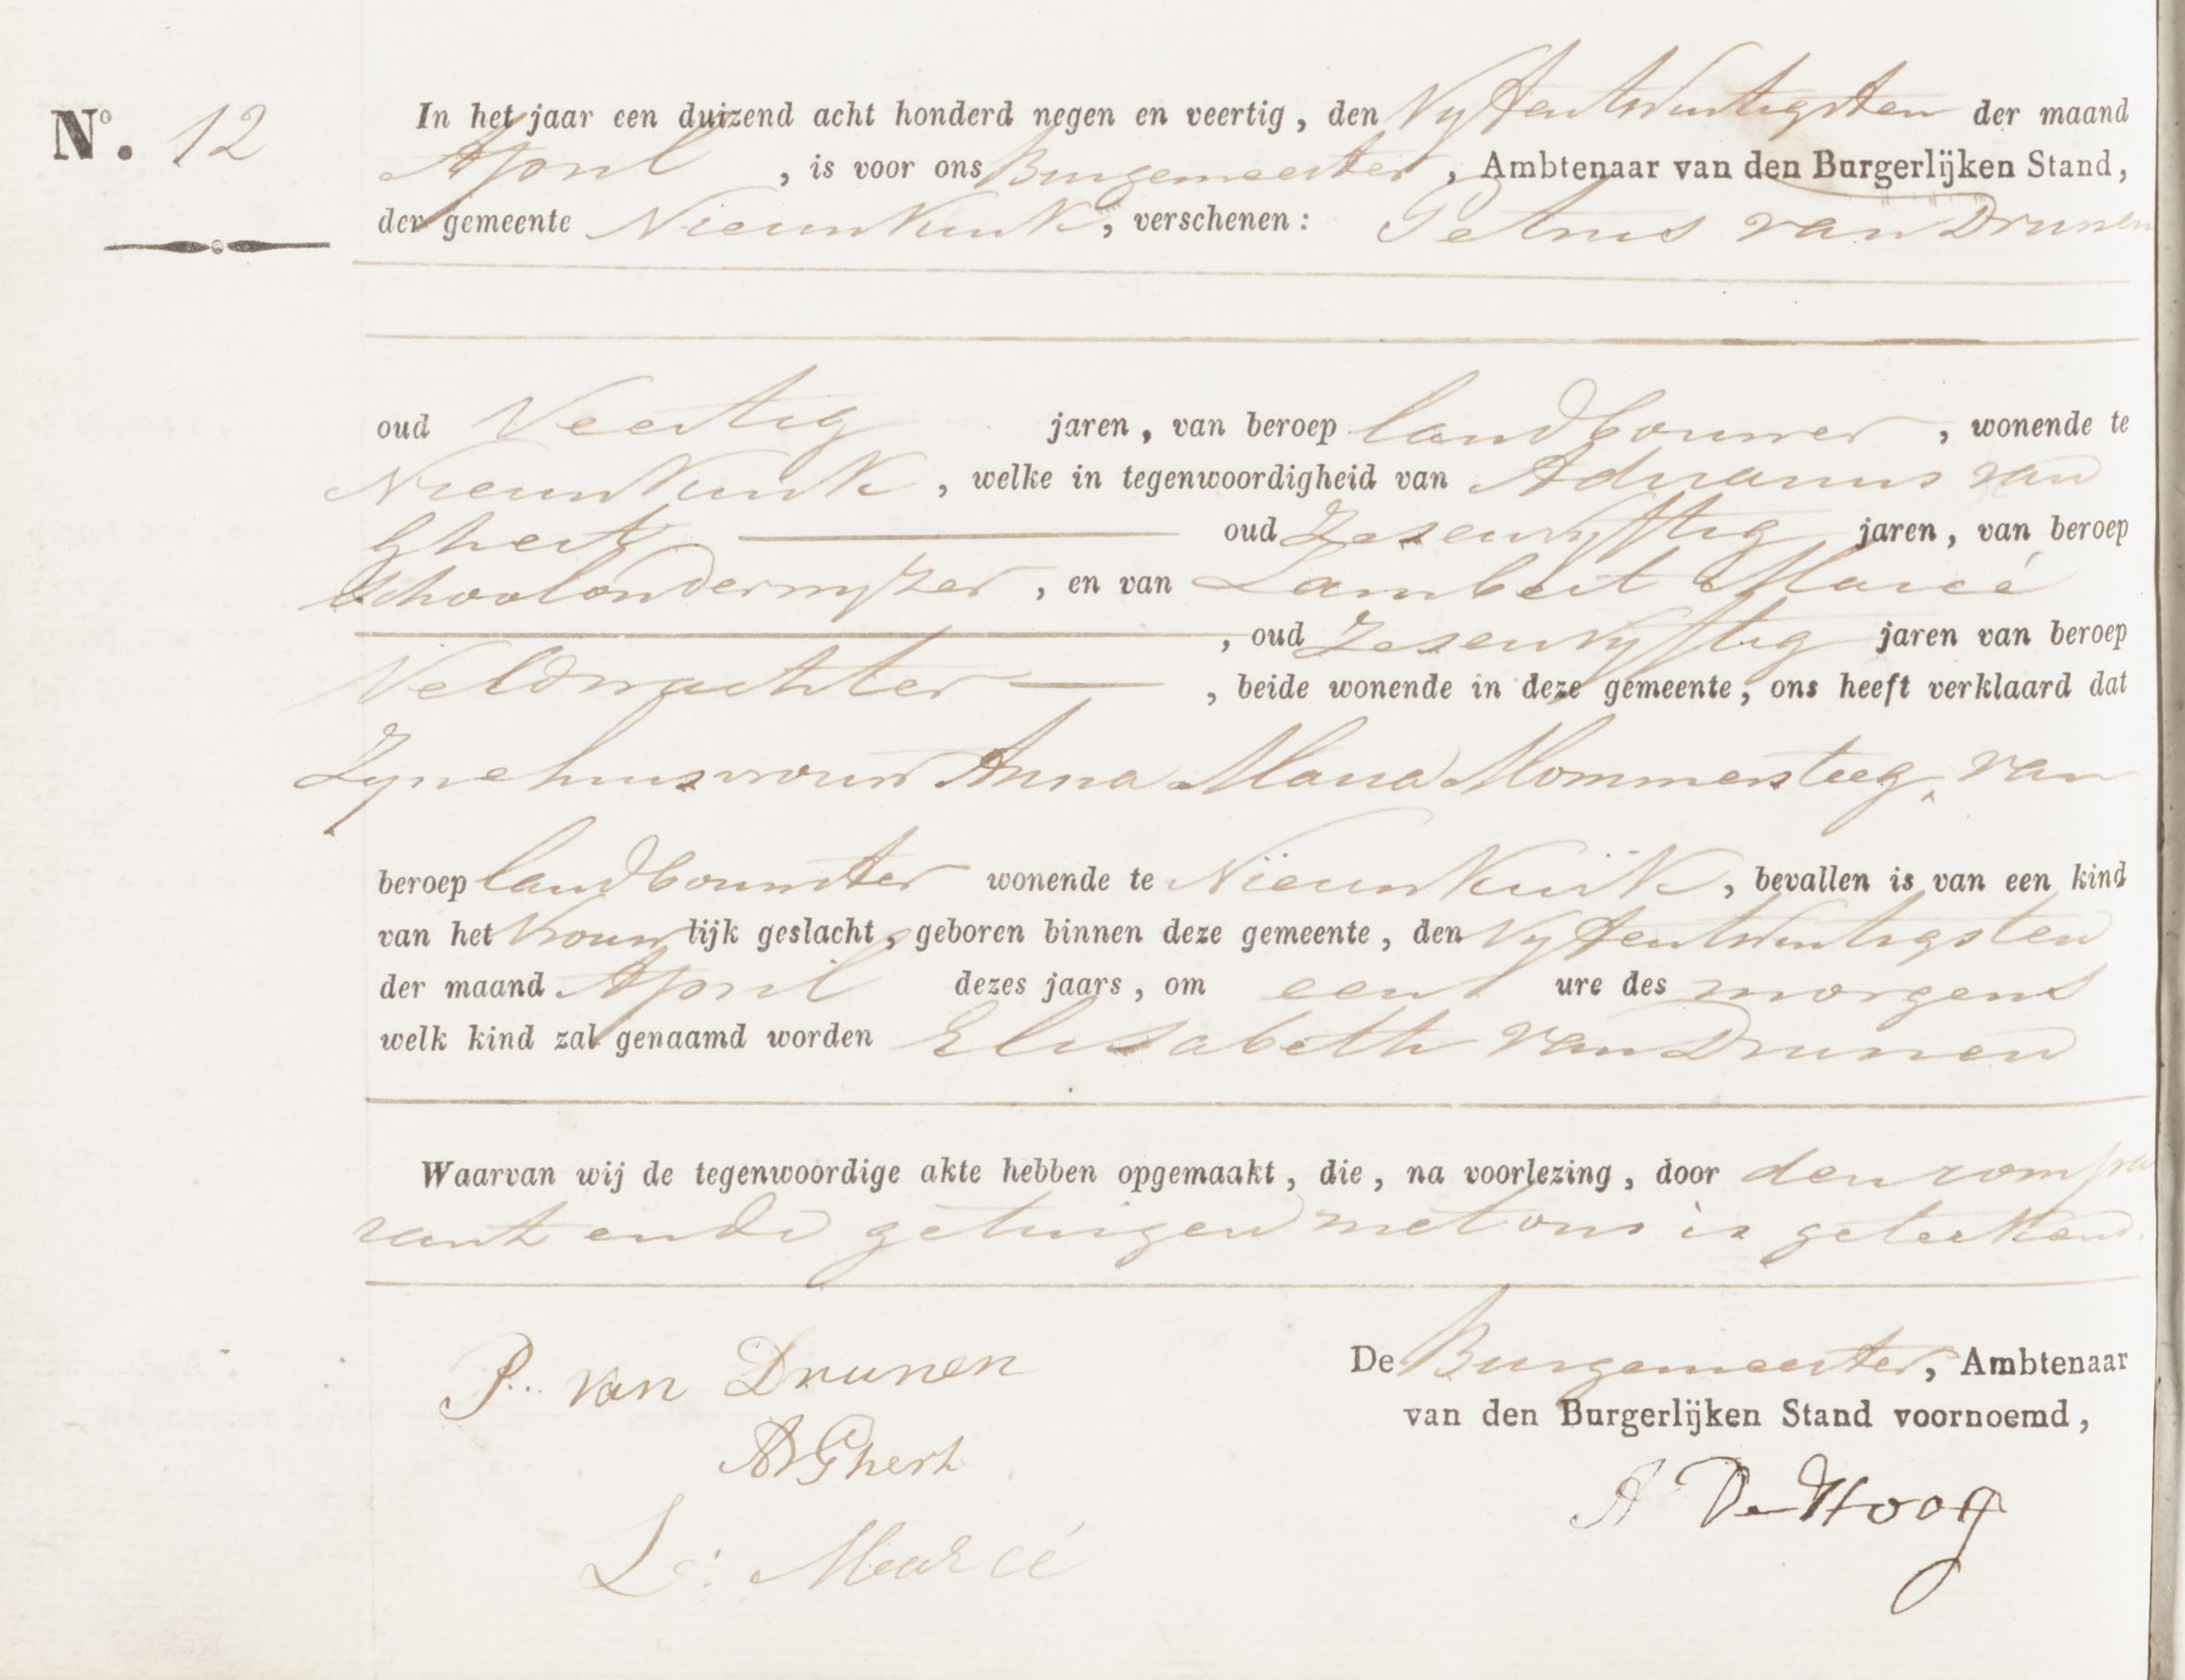 N°. 12
In het jaar een duizend acht honderd negen en veertig, den Vyfentwintigsten der maand
April, is voor ons Burgemeester, Ambtenaar van den Burgerlijken Stand,
der gemeente Nieuwkuik, verschenen: Petrus van Drunen
oud Veertig jaren, van beroep landbouwer, wonende te
Nieuwkuik, welke in tegenwoordigheid van Adrianus van
Ghert oud Zesenvyftig jaren, van beroep
Schoolonderwyzer, en van Lambert Marcé
, oud Zesenvyftig jaren van beroep
Veldwachter, beide wonende in deze gemeente, ons heeft verklaard dat
Zyne huisvrouw Anna Maria Mommersteeg, van
beroep landbouwster wonende te Nieuwkuik, bevallen is van een kind
van het Vrouwlijk geslacht, geboren binnen deze gemeente, den Vyfentwintigsten
der maand April dezes jaars, om een ure des morgens
welk kind zal genaamd worden Elisabeth van Drunen
Waarvan wij de tegenwoordige akte hebben opgemaakt, die, na voorlezing, door den compa
rant en de getuigen met ons is geteekend.
P. van Drunen
De Burgemeester, Ambtenaar
van den Burgerlijken Stand voornoemd,
AVGhert
A De Hoog
L: Marcé